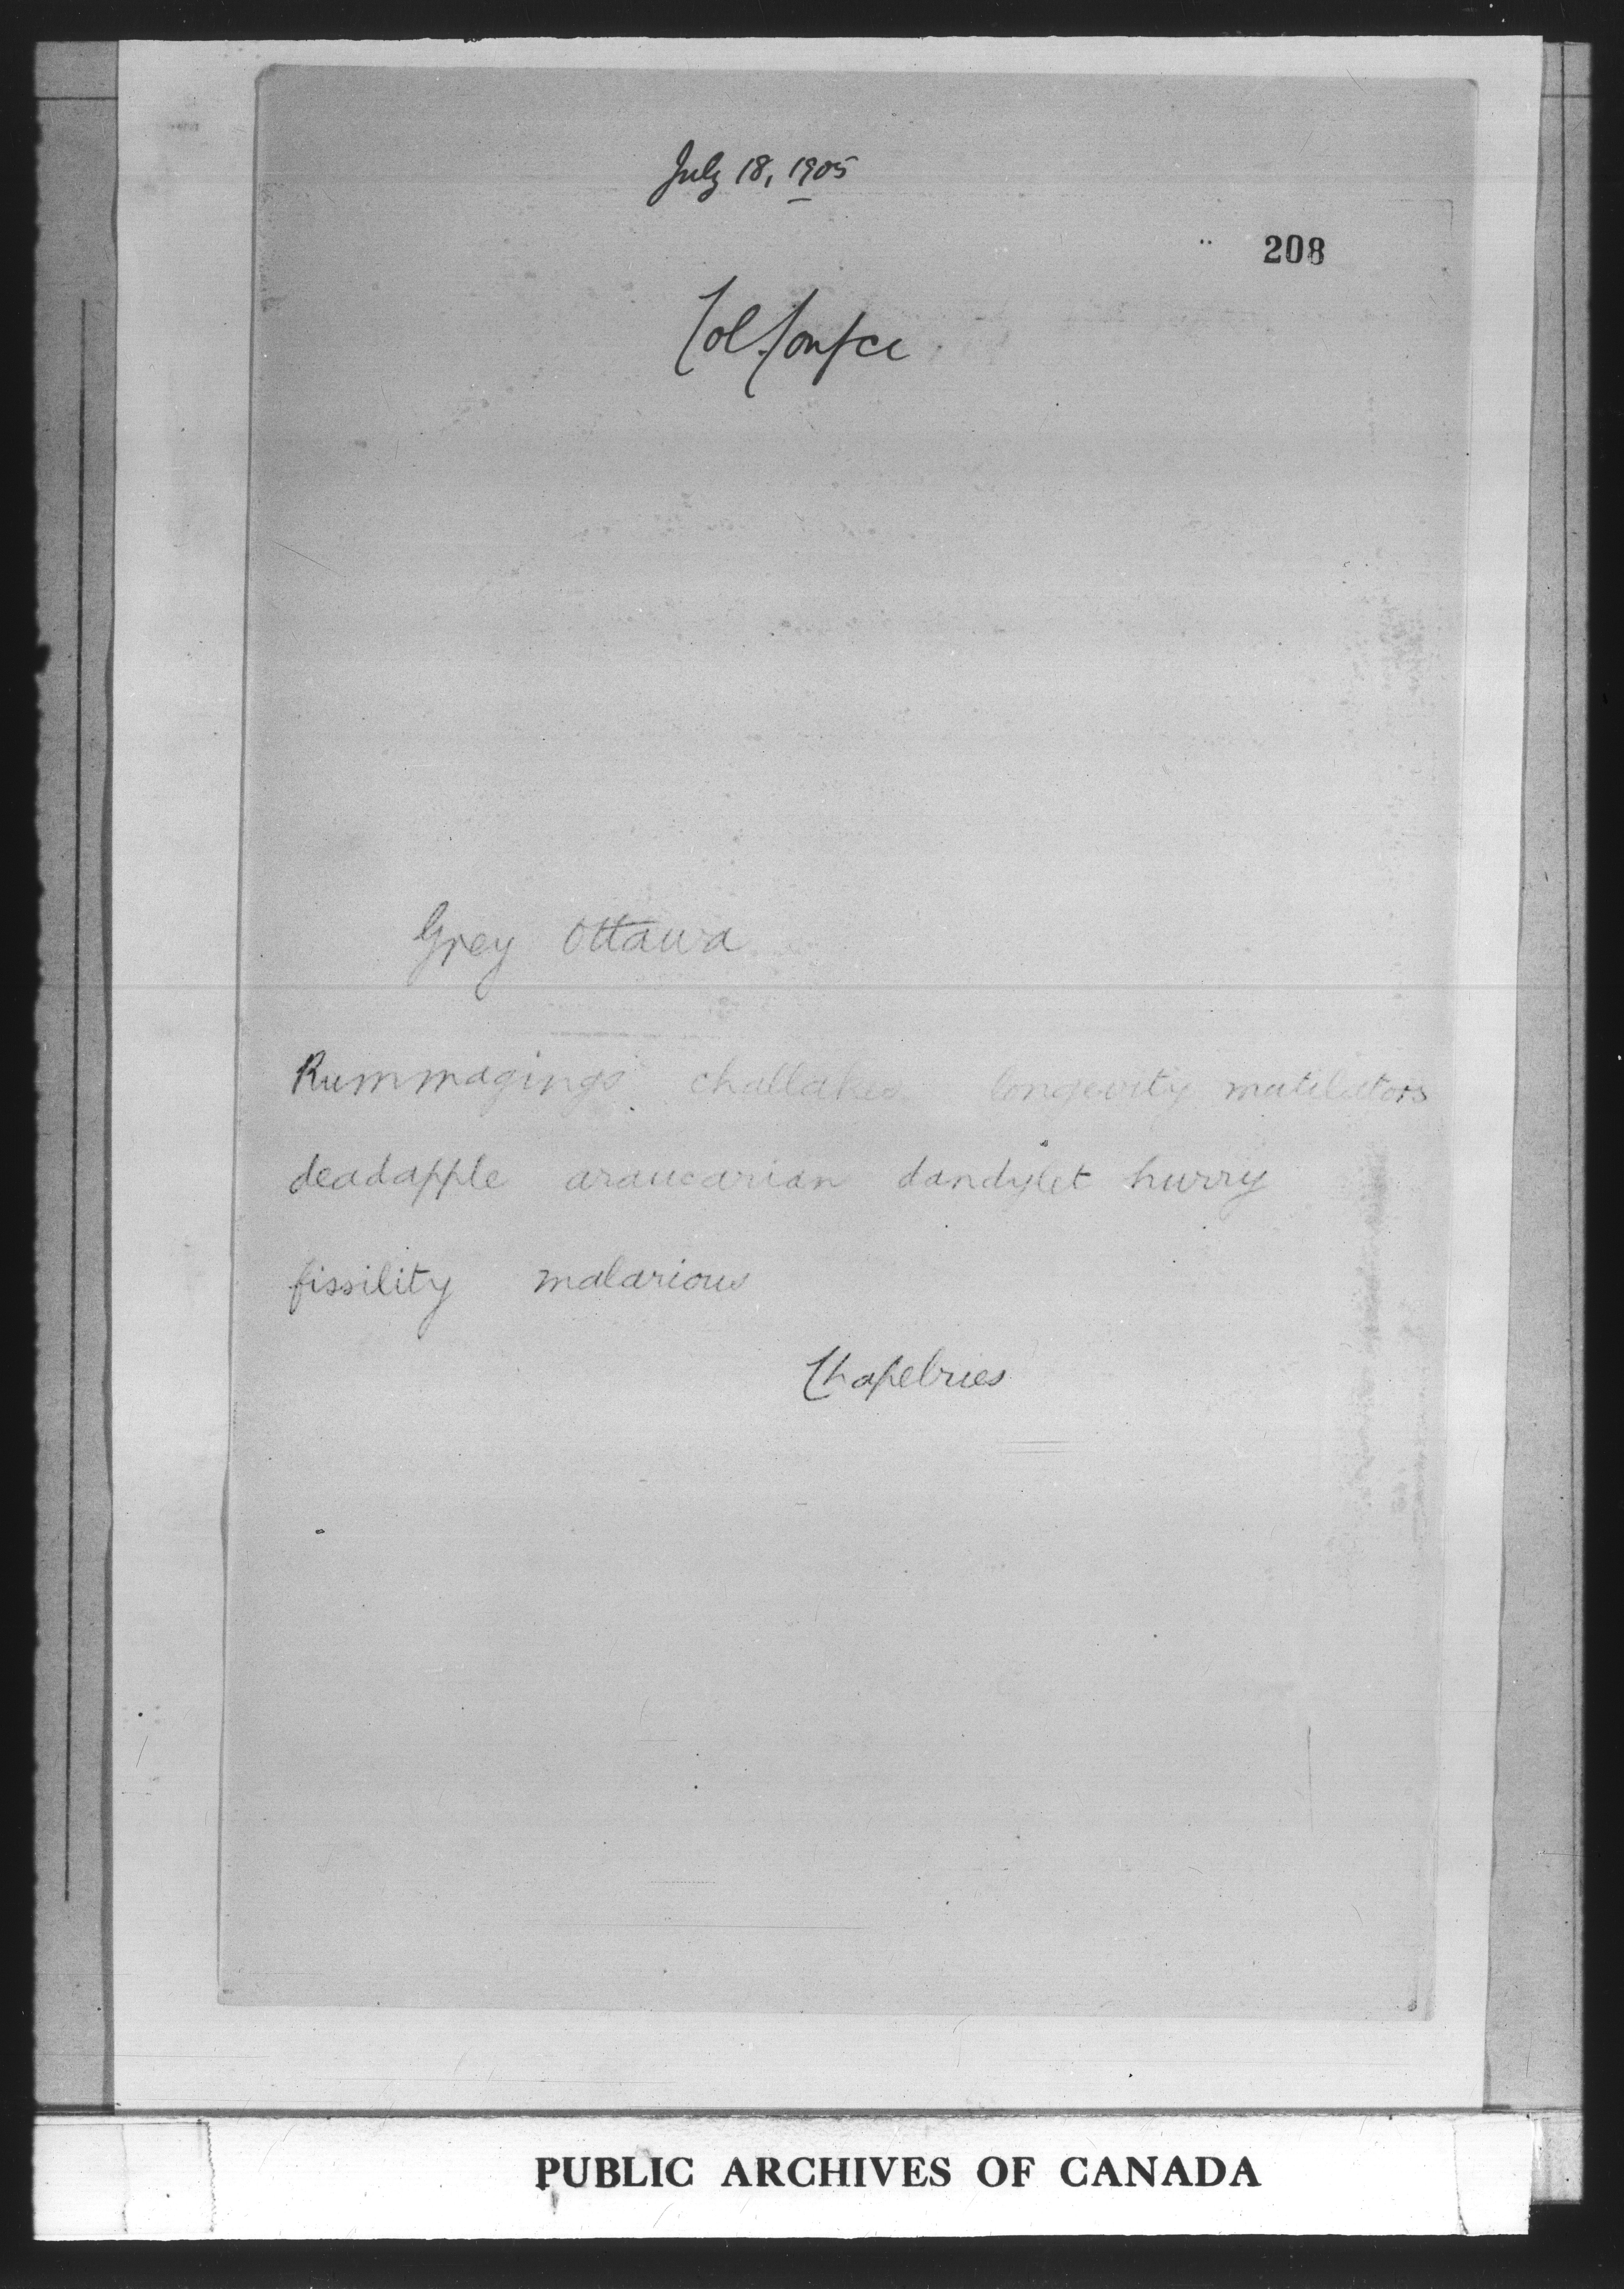 July 18, 1905
208
Col. Confce
Grey Ottawa
Rummagings longevity mutilators
deadapple araucarian dandylet hurry
fissility malarious
Chapelries
PUBLIC ARCHIVES OF CANADA